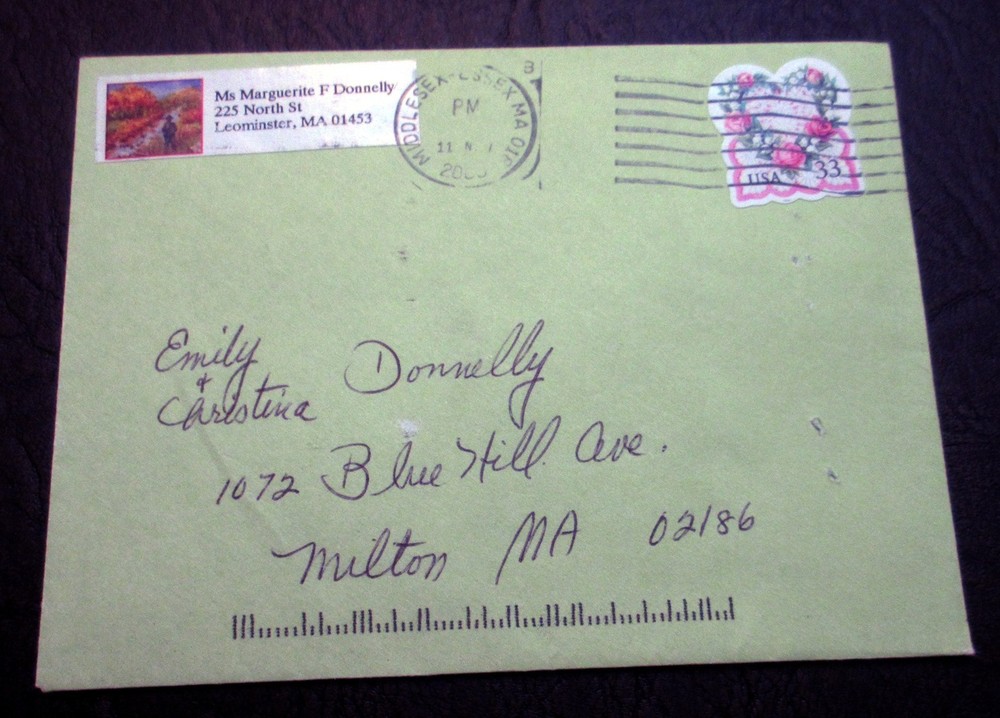 Ms Marguerite F Donnelly
225 North St
Leominster, MA 01453
MIDDLESEX-ESSEX MA
PM
11
B
USA 33
Emily
&
Christina Donnelly
1072 Blue Hill Ave.
Milton MA 02186